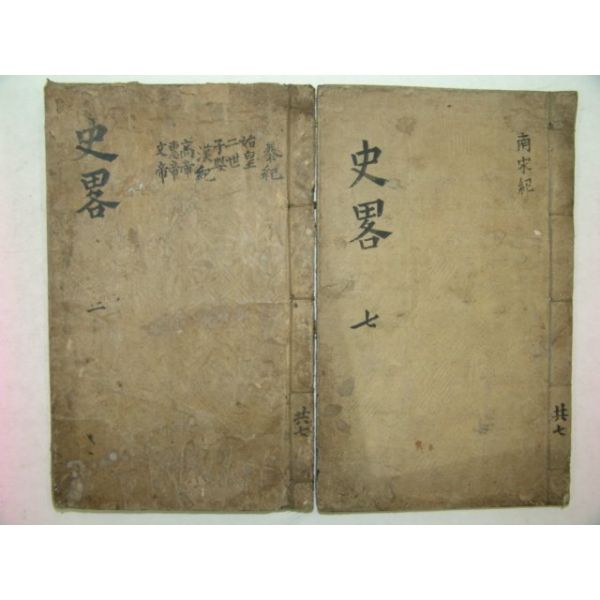 史畧
二
秦紀
始皇
二世
子嬰
漢紀
高帝
惠帝
文帝
共七
史畧
七
南宋紀
共七